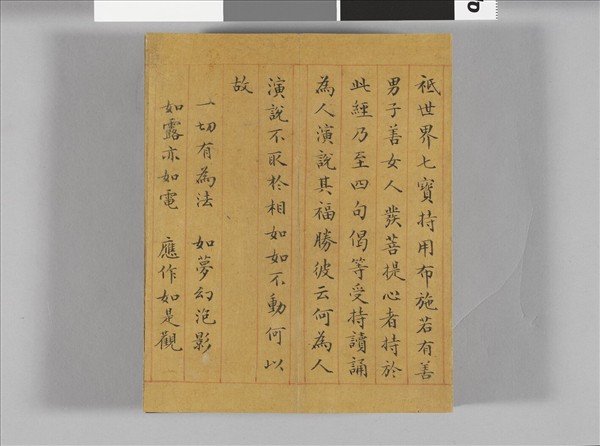 祗世界七寶持用布施若有善
男子善女人發菩提心者持於
此經乃至四句偈等受持讀誦
為人演說其福勝彼云何為人
演說不取於相如如不動何以
故
一切有為法　如夢幻泡影
如露亦如電　應作如是觀